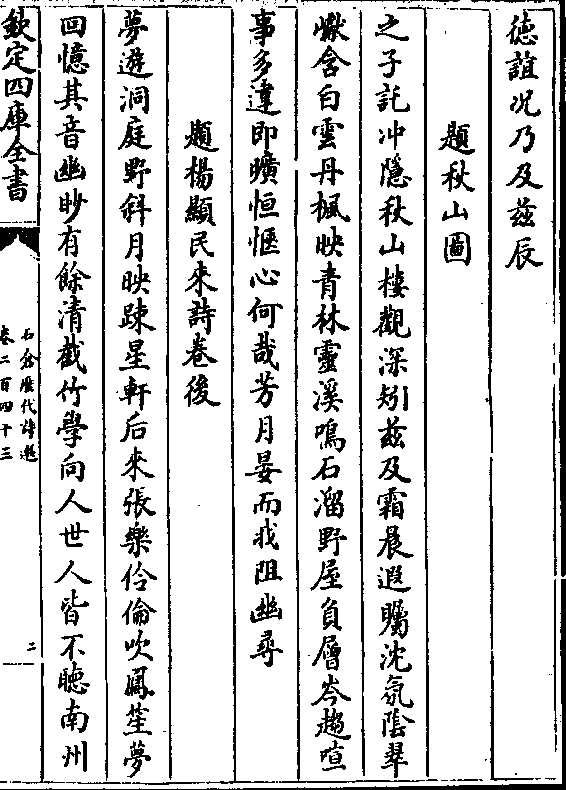 德誼况乃及茲辰
題秋山圖
之子託冲隱秋山樓觀深矧茲及霜晨遐矚沈氛陰翠
巘含白雲丹楓映青林靈溪鳴石溜野屋負層岑趨喧
事多違即曠恒愜心何哉芳月晏而我阻幽尋
題楊顯民來詩卷後
夢遊洞庭野斜月映踈星軒后來張樂伶倫吹鳳笙夢
回憶其音幽眇有餘清截竹學向人世人皆不聴南州
欽定四庫全書
石倉歷代詩選
卷二百四十三
二